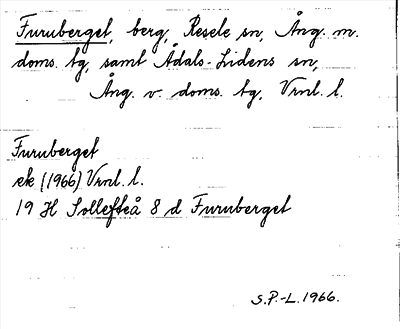 Furuberget, berg, Resele sn, Ång. m.
doms. tg, samt Ådals-Lidens sn,
Ång. v. doms. tg, Vrnl. l.
Furuberget
ek (1966) Vrnl. l.
19 H Sollefteå 8 d Furuberget
S.P.-L. 1966.